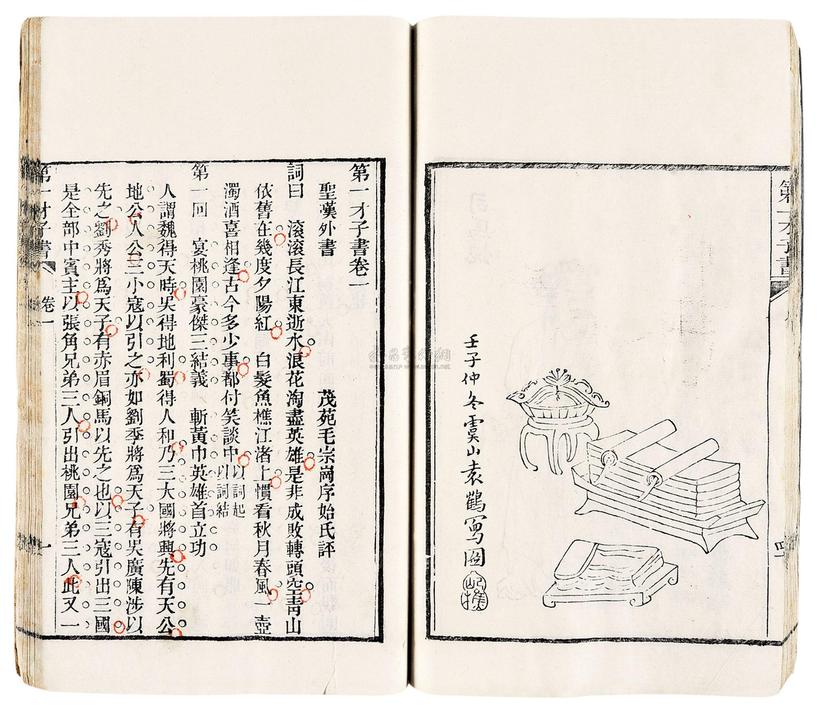 第一才子書
壬子仲冬虞山袁鶴寫圖
第一才子書卷一
聖嘆外書 茂苑毛宗崗序始氏評
詞曰 滾滾長江東逝水浪花淘盡英雄是非成敗轉頭空靑山
依舊在幾度夕陽紅 白髮魚樵江渚上慣看秋月春風一壺
濁酒喜相逢古今多少事都付笑談中以詞起以詞結
第一回 宴桃園豪傑三結義 斬黃巾英雄首立功
人謂魏得天時吳得地利蜀得人和乃三大國將興先有天公
地公人公三小寇以引之亦如劉季將爲天子有吳廣陳涉以
先之劉秀將爲天子有赤眉銅馬以先之也以三寇引出三國
是全部中賓主以張角兄弟三人引出桃園兄弟三人此又一
第一才子書 卷一 一